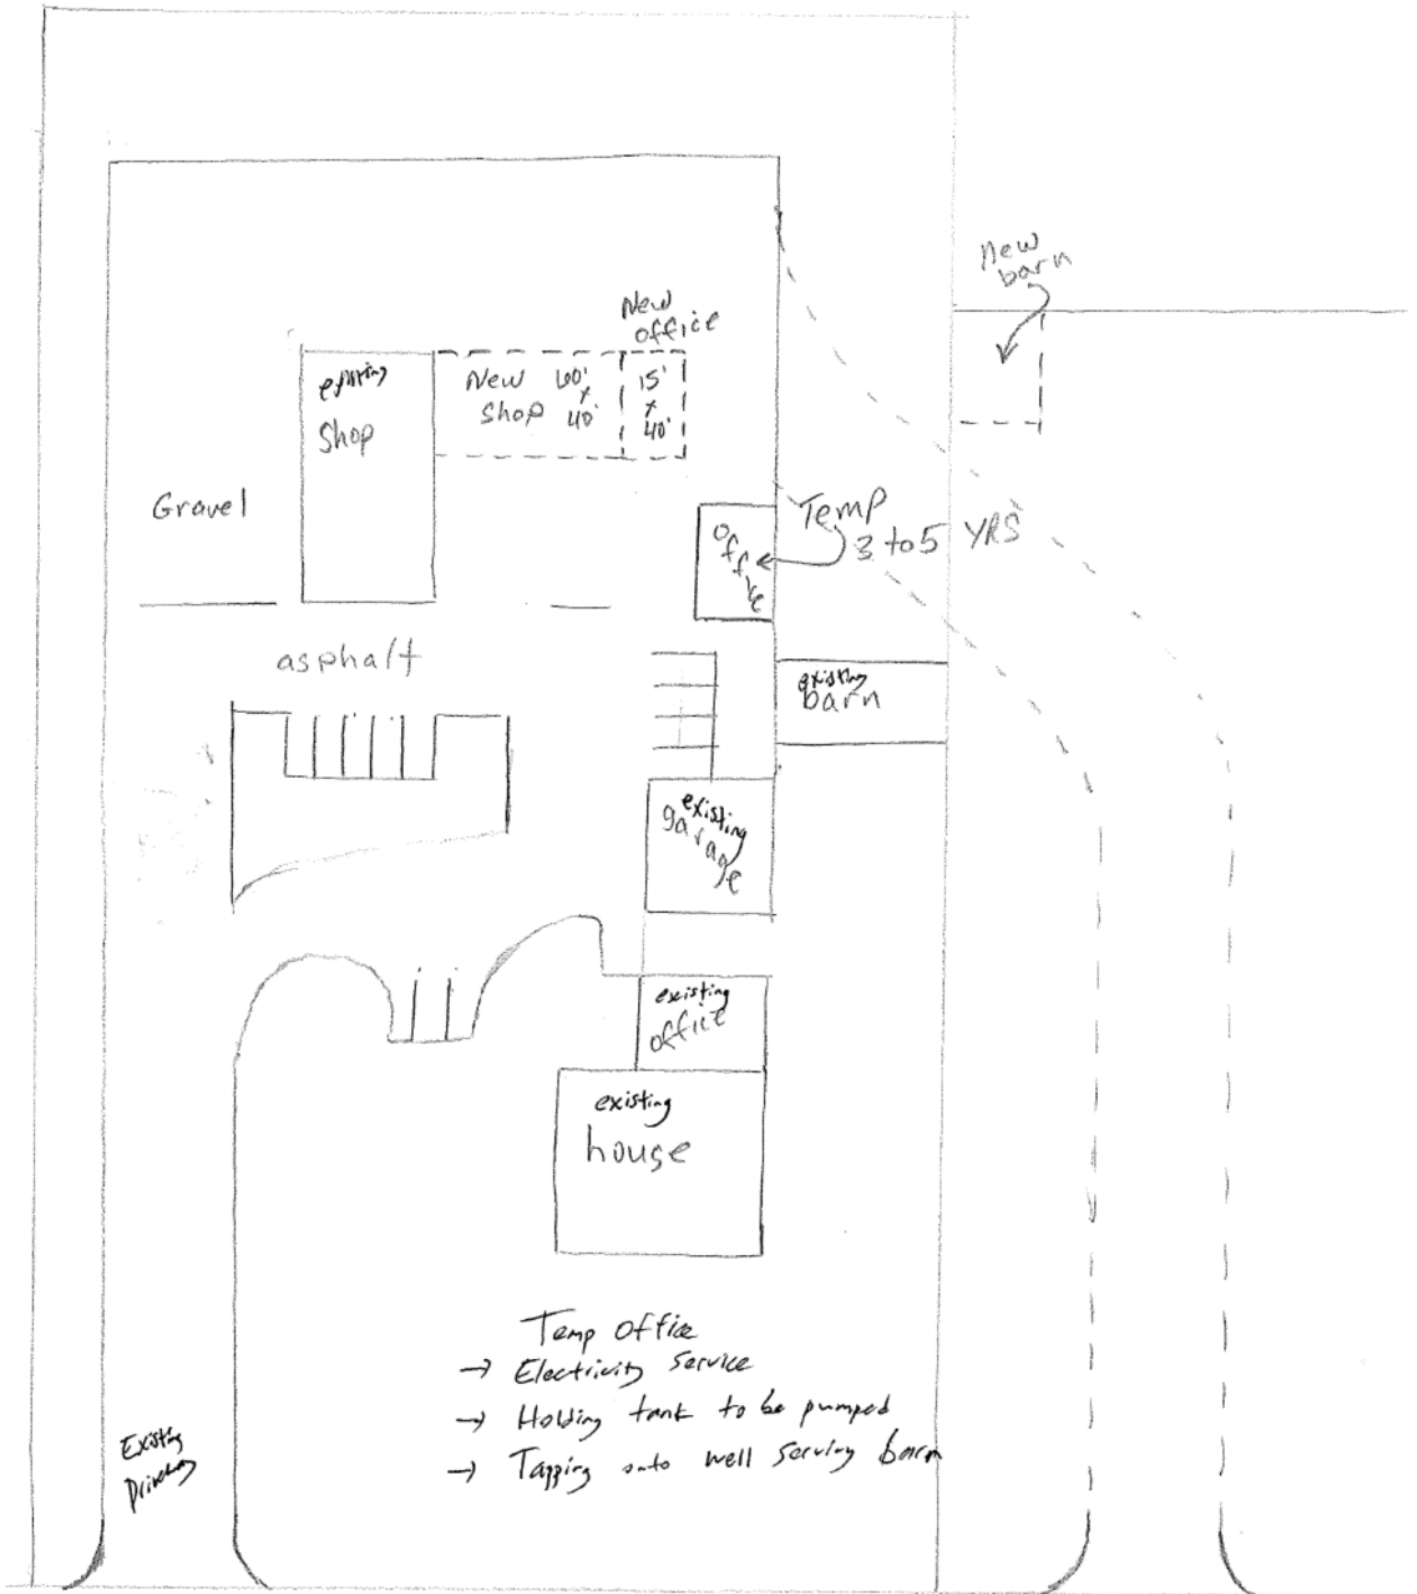 New
barn
New
office
existing
Shop
New 60'
x
Shop 40'
15'
x
40'
Gravel
Temp
3 to 5 YRS
office
asphalt
existing
barn
existing
garage
existing
office
existing
house
Temp Office
→ Electricity Service
→ Holding tank to be pumped
→ Tapping onto well serving barn
Existing
Driveway